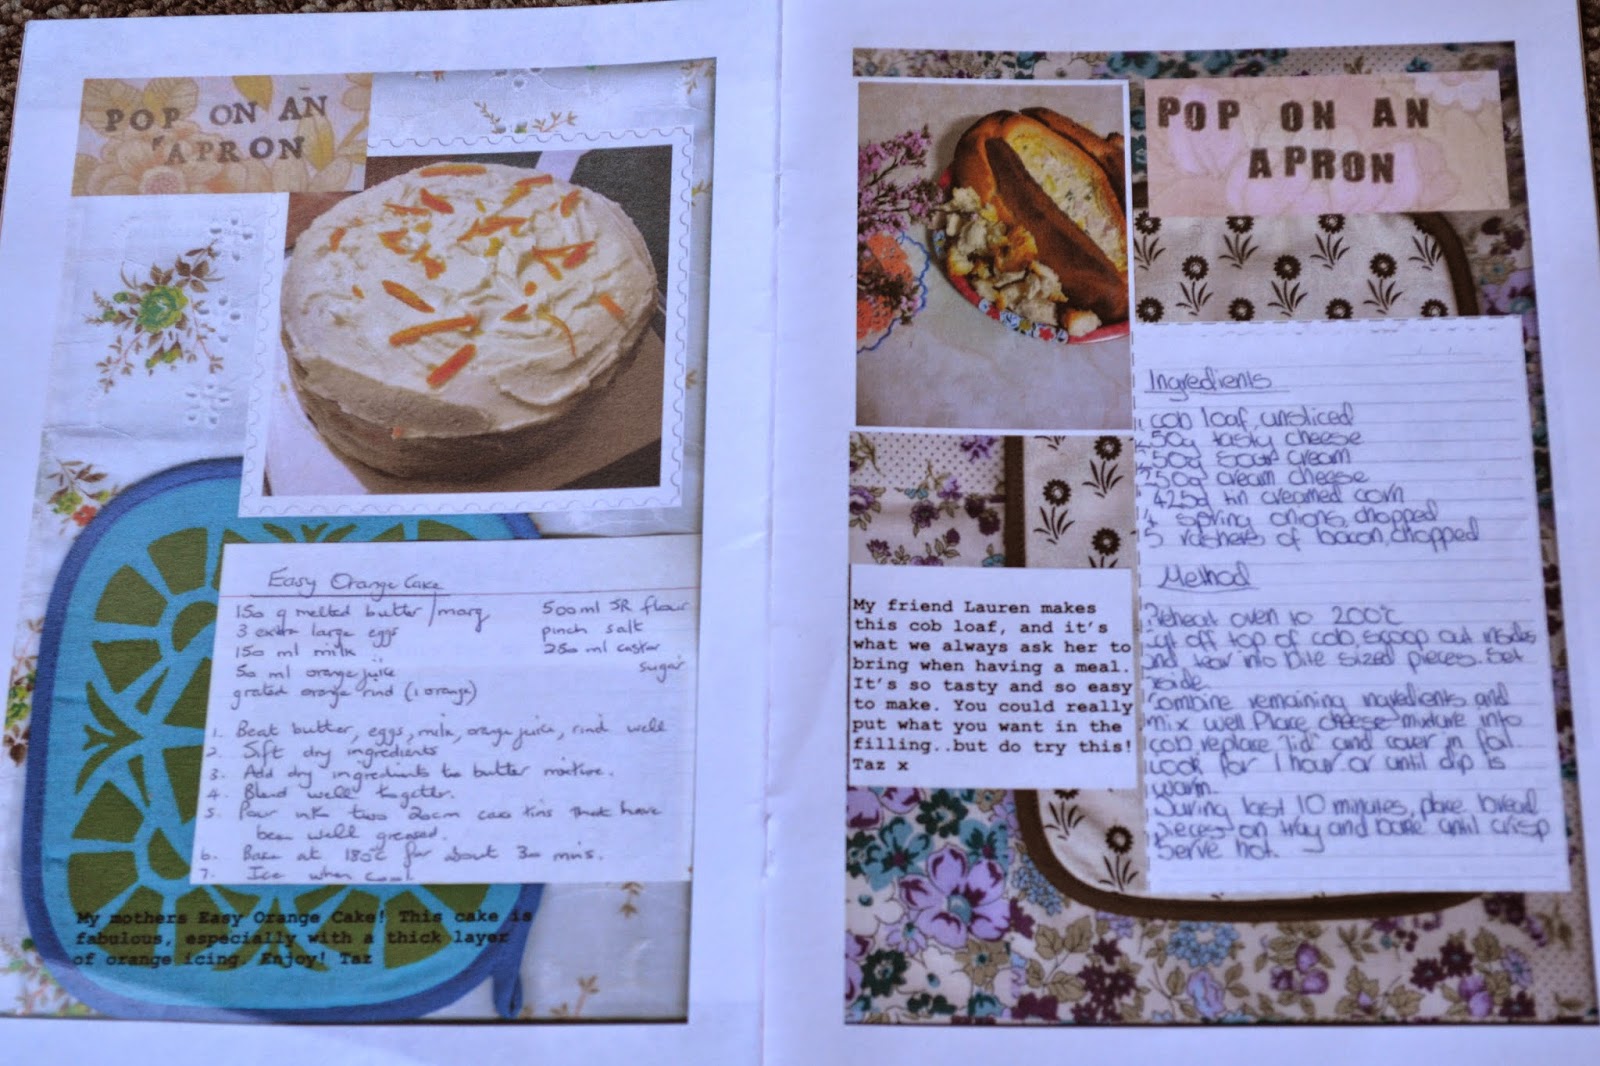 POP ON AN
APRON
Easy Orange Cake
150 g melted butter/marg
3 extra large eggs
150 ml milk
50 ml orange juice
grated orange rind (1 orange)
500ml SR flour
pinch salt
250 ml castor
sugar
1. Beat butter, eggs, milk, orange juice, rind well
2. Sift dry ingredients
3. Add dry ingredients to butter mixture.
4. Blend well together.
5. Pour into two 20cm cake tins that have
been well greased.
6. Bake at 180°C for about 30 mins.
7. Ice when cool.
My mothers Easy Orange Cake! This cake is
fabulous, especially with a thick layer
of orange icing. Enjoy! Taz
POP ON AN
APRON
My friend Lauren makes
this cob loaf, and it's
what we always ask her to
bring when having a meal.
It's so tasty and so easy
to make. You could really
put what you want in the
filling..but do try this!
Taz x
Ingredients
cob loaf, unsliced
50g tasty cheese
50g sour cream
250g cream cheese
425g tin creamed corn
spring onions, chopped
5 rashers of bacon, chopped
Method
Preheat oven to 200°c
Cut off top of cob, scoop out insides
and tear into bite sized pieces. Set
aside.
Combine remaining ingredients and
mix well. Place cheese mixture into
cob, replace "lid" and cover in foil
Cook for 1 hour or until dip is
warm.
During last 10 minutes, place bread
pieces on tray and bake until crisp
Serve hot.